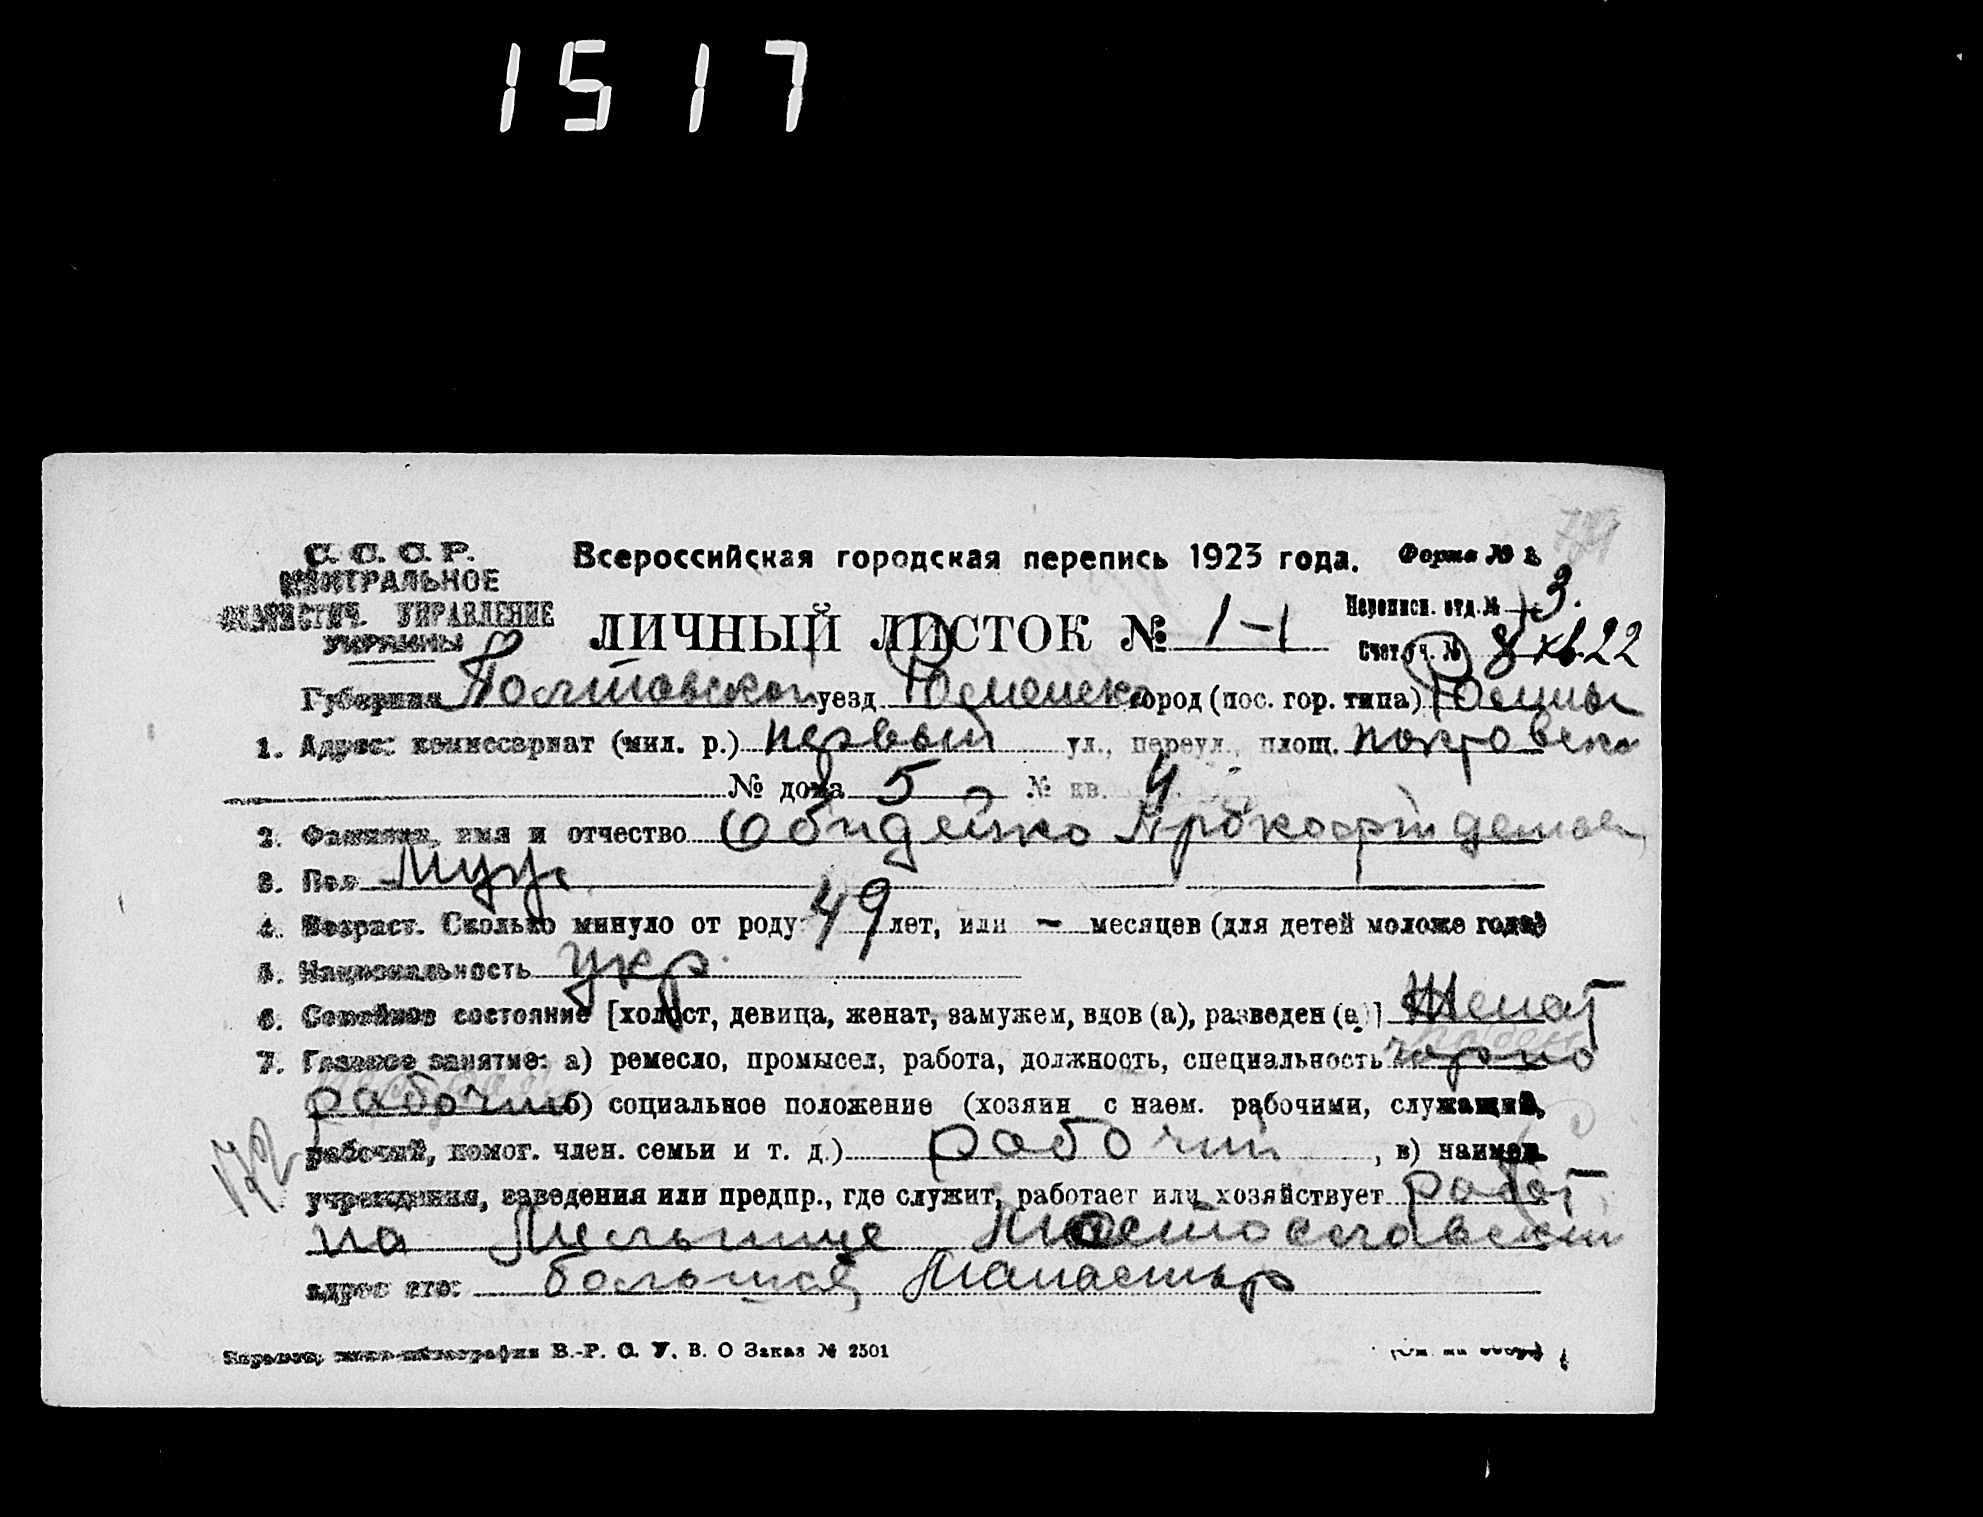 1517
С. С. С. Р. Всероссийская городская перепись 1923 года. Форма № 2
ЦЕНТРАЛЬНОЕ
СТАТИСТИЧ. УПРАВЛЕНИЕ
УКРАИНЫ
ЛИЧНЫЙ ЛИСТОК № 1-1
Переписн. отд. № 3.
Счет. уч. № 8 кв. 22
Губерния Полтавской уезд Роменск город (пос. гор. типа) Ромны
1. Адрес: комиссариат (мил. р.) первый ул., переул., площ.
№ дома 5 № кв. 4
2. Фамилия, имя и отчество Обидейко Прокофий
3. Пол Муж
4. Возраст. Сколько минуло от роду 49 лет, или — месяцев (для детей моложе года)
5. Национальность укр.
6. Семейное состояние [холост, девица, женат, замужем, вдов (а), разведен (а)] Женат
7. Главное занятие: а) ремесло, промысел, работа, должность, специальность черно
рабочий б) социальное положение (хозяин с наем. рабочими, служащий,
рабочий, помог. член. семьи и т. д.) рабочий, в) наимен.
учреждения, заведения или предпр., где служит, работает или хозяйствует работ
на Мельнице
адрес его:
172
В.-Р. С. У. В. О Заказ № 2501